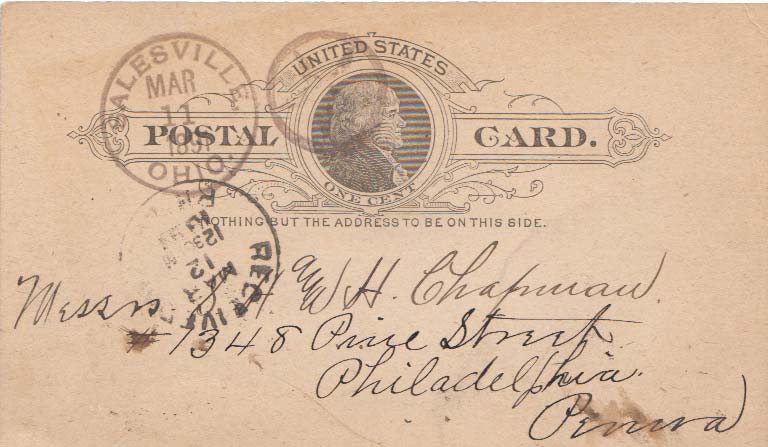 SALESVILLE
MAR
11
189
OHIO.
UNITED STATES
POSTAL CARD.
ONE CENT
NOTHING BUT THE ADDRESS TO BE ON THIS SIDE.
RECEIVED
MAR
12
Messrs S H & H. Chapman.
# 1348 Pine Street
Philadelphia.
Penna